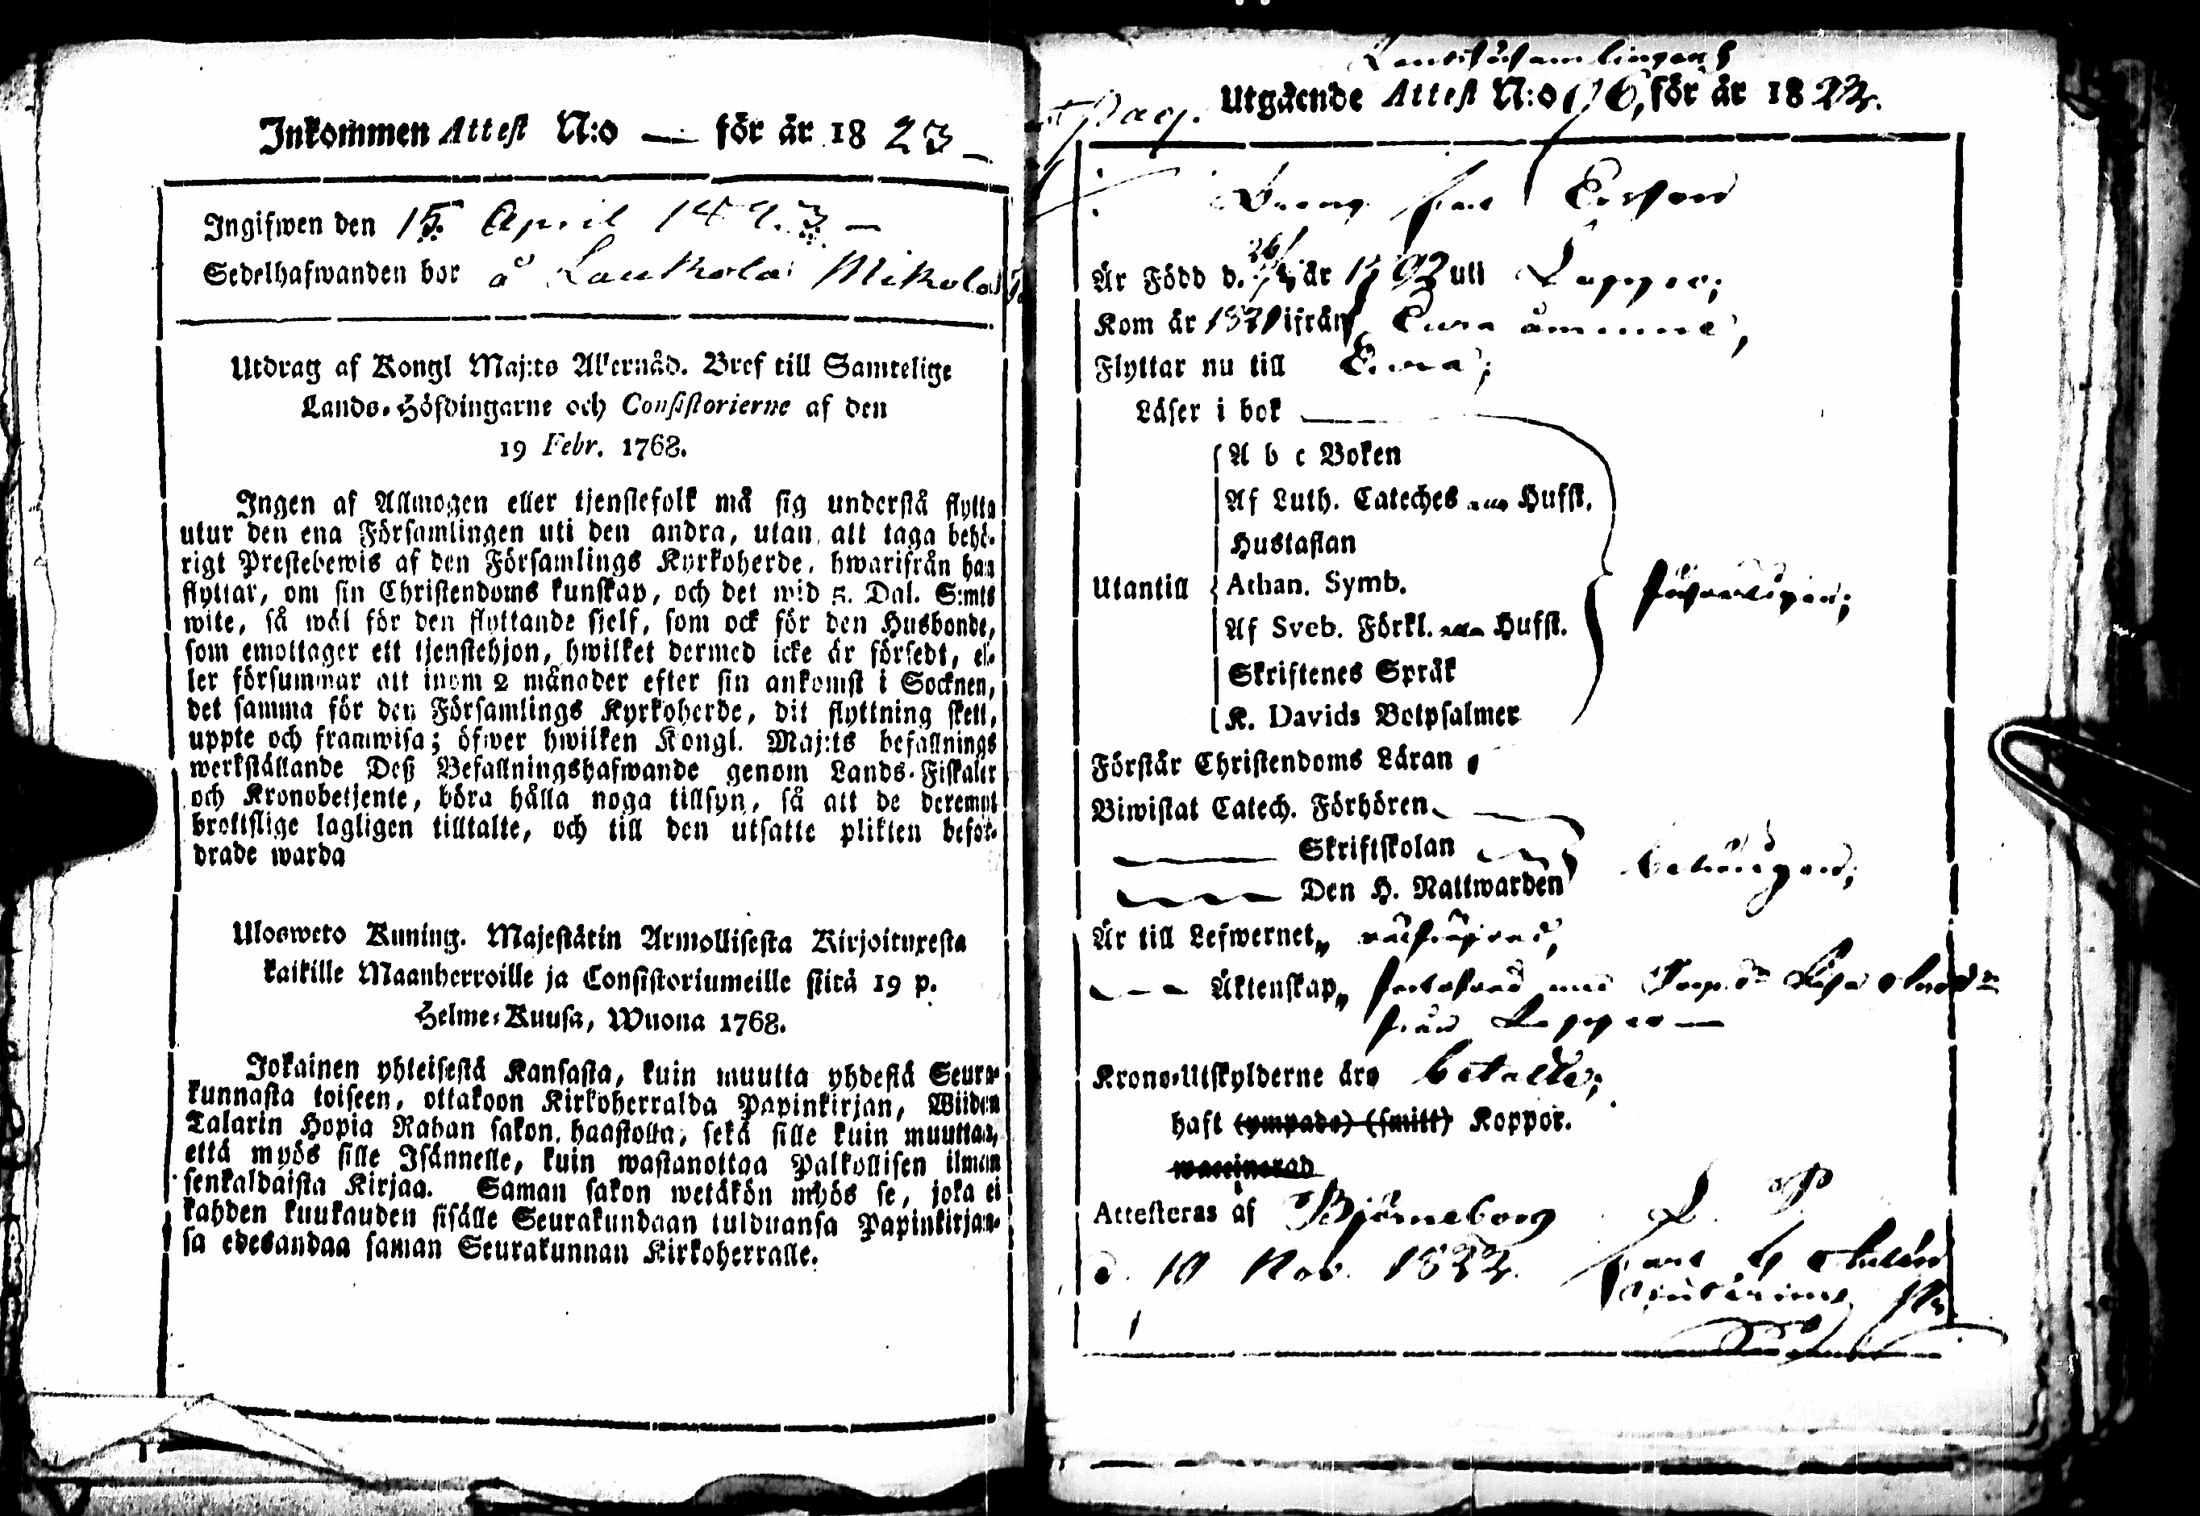 Inkommen Attest N:o — för år 1823 —
Ingifwen den 15 April 1823 —
Sedelhafwanden bor å Laukola Mikola
Utdrag af Kongl Maj:ts Allernåd. Bref till Samtelige
Lands-Höfdingarne och Consistorierne af den
19 Febr. 1768.
Ingen af Allmogen eller tjenstefolk må sig understå flytta
utur den ena Församlingen uti den andra, utan att taga behö-
rigt Prestebewis af den Församlings Kyrkoherde, hwarifrån han
flyttar, om sin Christendoms kunskap, och det wid 5. Dal. S:mts
wite, så wäl för den flyttande sjelf, som ock för den Husbonde,
som emottager ett tjenstehjon, hwilket dermed icke är försedt, el-
ler försummar att inom 2 månader efter sin ankomst i Socknen,
det samma för den Församlings Kyrkoherde, dit flyttning skett,
uppte och framwisa; öfwer hwilken Kongl. Maj:ts befallnings
werkställande Deß Befallningshafwande genom Lands-Fiskaler
och Kronobetjente, böra hålla noga tillsyn, så att de deremot
brottslige lagligen tilltalte, och till den utsatte plikten befor-
drade warda
Ulosweto Kuning. Majestätin Armollisesta Kirjoituxesta
kaikille Maanherroille ja Consistoriumeille siitä 19 p.
Helme-Kuusa, Wuona 1768.
Jokainen yhteisestä Kansasta, kuin muutta yhdestä Seura-
kunnasta toiseen, ottakoon Kirkoherralda Papinkirjan, Wiiden
Talarin Hopia Rahan sakon haastolla, sekä sille kuin muuttaa,
että myös sille Isännelle, kuin wastanottaa Palkollisen ilman
senkaldaista Kirjaa. Saman sakon wetäkön myös se, joka ei
kahden kuukauden sisälle Seurakundaan tulduansa Papinkirjan-
sa edesandaa saman Seurakunnan Kirkoherralle.
Landsförsamlingens
pag. Utgående Attest N:o 76, för år 1822.
Dreng Erson
Är Född d. 26/ år 1792 uti Lappo;
Kom år 1821 ifrån Eura åminne,
Flyttar nu till Eura;
Läser i bok
A b c Boken
Af Luth. Cateches Hufst.
Hustaflan
Utantill Athan. Symb.
Af Sveb. Förkl. Hufst.
Skriftenes Språk
K. Davids Botpsalmer
Förstår Christendoms Läran
Biwistat Catech. Förhören
Skriftskolan
Den H. Nattwarden
Är till Lefwernet
Äktenskap med
från Lappo —
Krono-Utskylderne äro betalte;
haft (ympade) (smitt) Koppor.
waccinerad
Attesteras af Björneborg
d. 10 Nov. 1822.